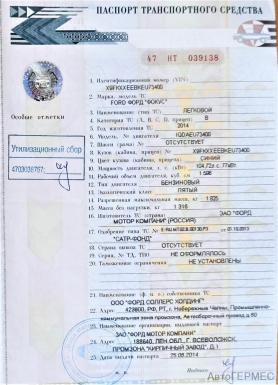 ПАСПОРТ ТРАНСПОРТНОГО СРЕДСТВА
47 НТ 039138
Особые отметки
1. Идентификационный номер (VIN)
X9FKXXEEBKEU73400
2. Марка, модель ТС
FORD ФОРД "ФОКУС"
3. Наименование (тип ТС) ЛЕГКОВОЙ
4. Категория ТС (A, B, C, D, прицеп) B
5. Год изготовления ТС 2014
6. Модель, № двигателя IQDAEU73400
7. Шасси (рама) № ОТСУТСТВУЕТ
8. Кузов (кабина, прицеп) № X9FKXXEEBKEU73400
9. Цвет кузова (кабины, прицепа) СИНИЙ
10. Мощность двигателя, л. с. (кВт) 104.72л.с. 77кВт
11. Рабочий объем двигателя, куб. см 1 596
12. Тип двигателя БЕНЗИНОВЫЙ
13. Экологический класс ПЯТЫЙ
14. Разрешенная максимальная масса, кг 1 825
15. Масса без нагрузки, кг 1 316
16. Изготовитель ТС (страна) ЗАО "ФОРД
МОТОР КОМПАНИ" (РОССИЯ)
17. Одобрение типа ТС №
"САТР-ФОНД"
18. Страна вывоза ТС ОТСУТСТВУЕТ
19. Серия, № ТД, ТПО НЕ ОФОРМЛЯЛОСЬ
20. Таможенные ограничения НЕ УСТАНОВЛЕНЫ
Утилизационный сбор
21. Наименование (ф. и. о.) собственника ТС
ООО "ФОРД СОЛЛЕРС ХОЛДИНГ"
22. Адрес 423800, РФ, РТ, г Набережные Челны, Промышленно-
коммунальная зона промзона, Автосборочный проезд, д 60
23. Наименование организации, выдавшей паспорт
ЗАО "ФОРД МОТОР КОМПАНИ"
24. Адрес 188640, ЛЕН.ОБЛ, Г. ВСЕВОЛОЖСК,
ПРОМЗОНА "КИРПИЧНЫЙ ЗАВОД", Д.1
25. Дата выдачи паспорта 25.08.2014
М.П. Подпись
АвтоГЕРМЕС